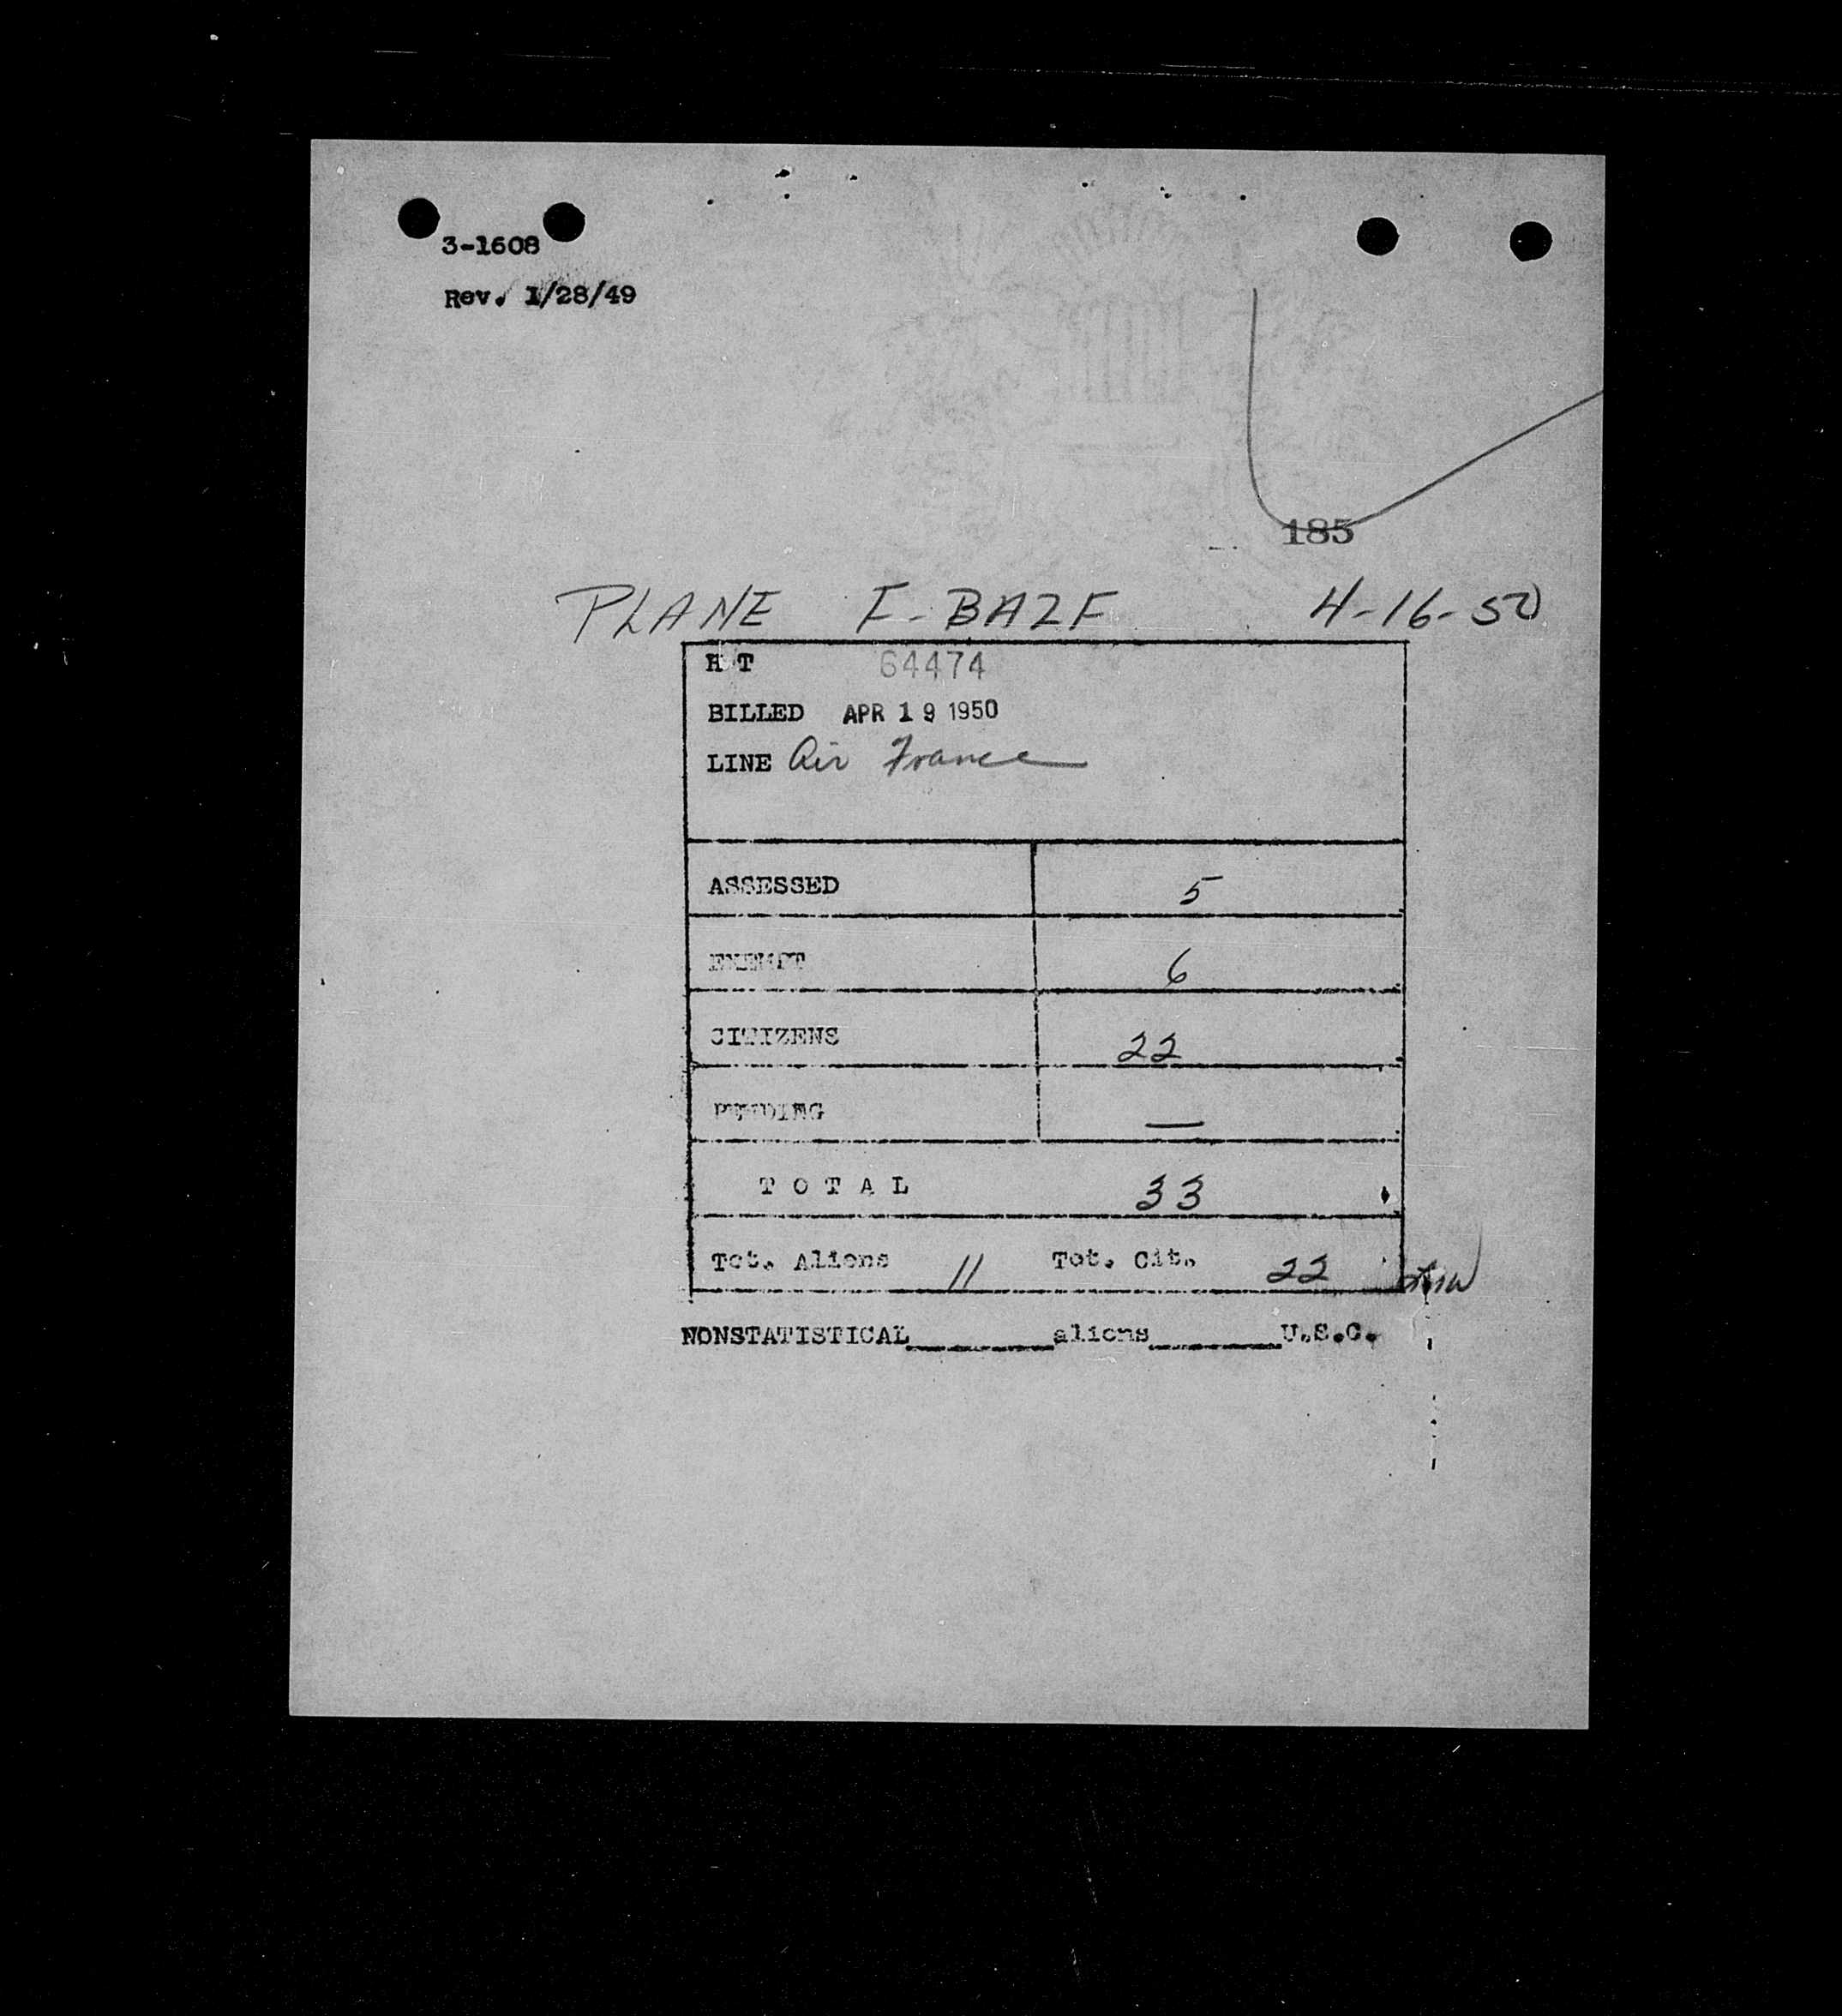 3-1608
Rev. 1/28/49
185
PLANE F-BAZF 4-16-50
H T 64474
BILLED APR 19 1950
LINE Air France
ASSESSED 5
EXEMPT 6
CITIZENS 22
PENDING —
TOTAL 33
Tot. Aliens 11 Tot. Cit. 22
NONSTATISTICAL________aliens________U.S.C.